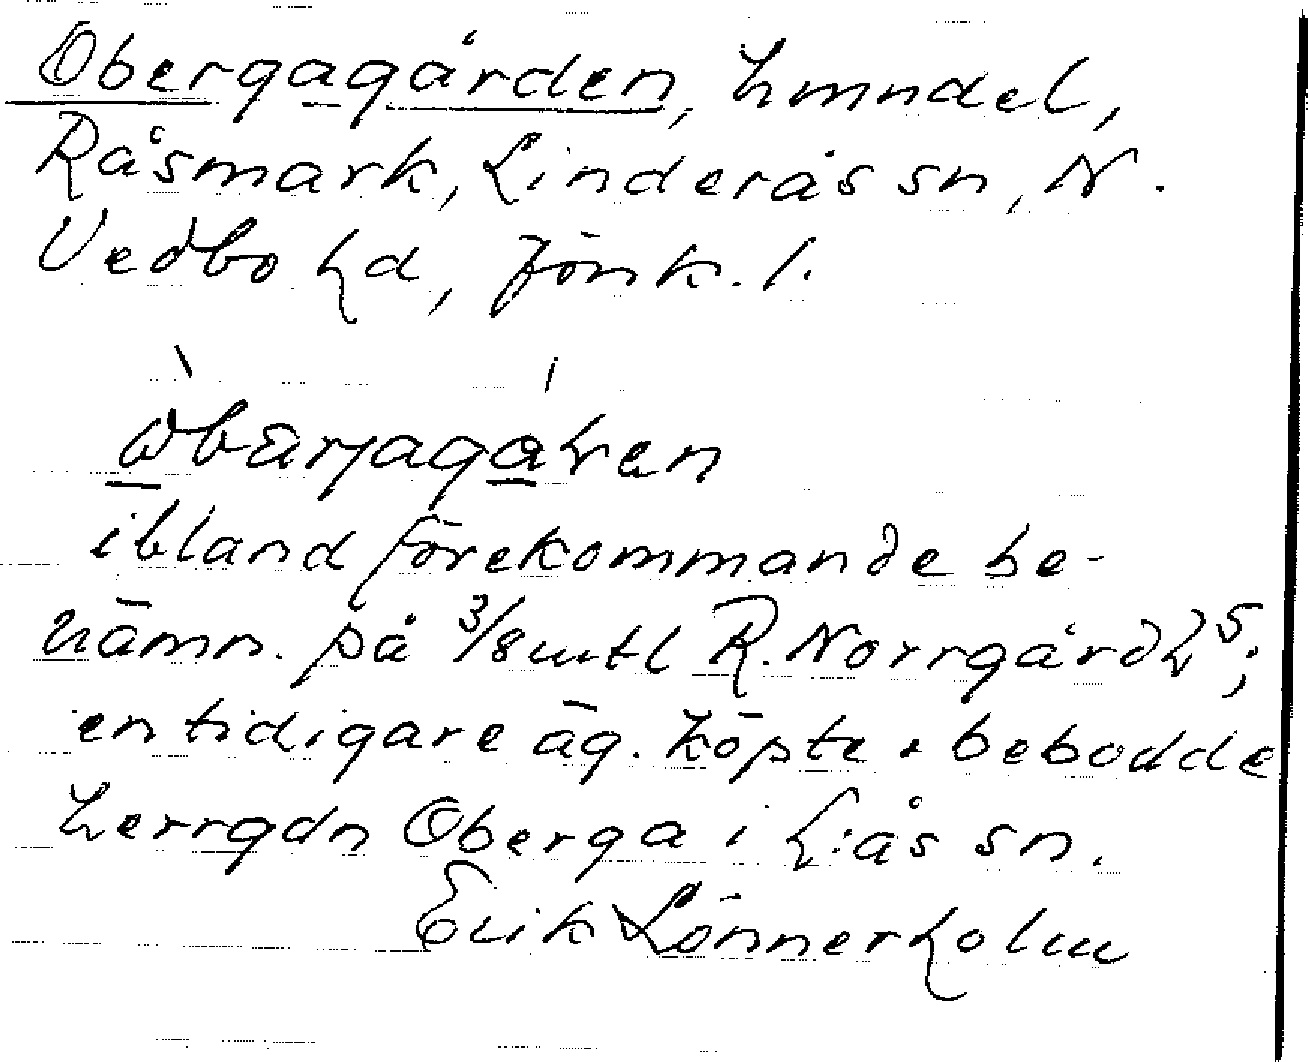 Obergagården, hmndel,
Råsmark, Linderås sn, N.
Vedbo hd, Jönk. l.
òbärjagáLen
ibland förekommande be-
nämn. på 3/8 mtl R. Norrgård h5;
en tidigare äg. köpte + bebodde
herrgdn Oberga i L:ås sn.
Erik Lönnerholm